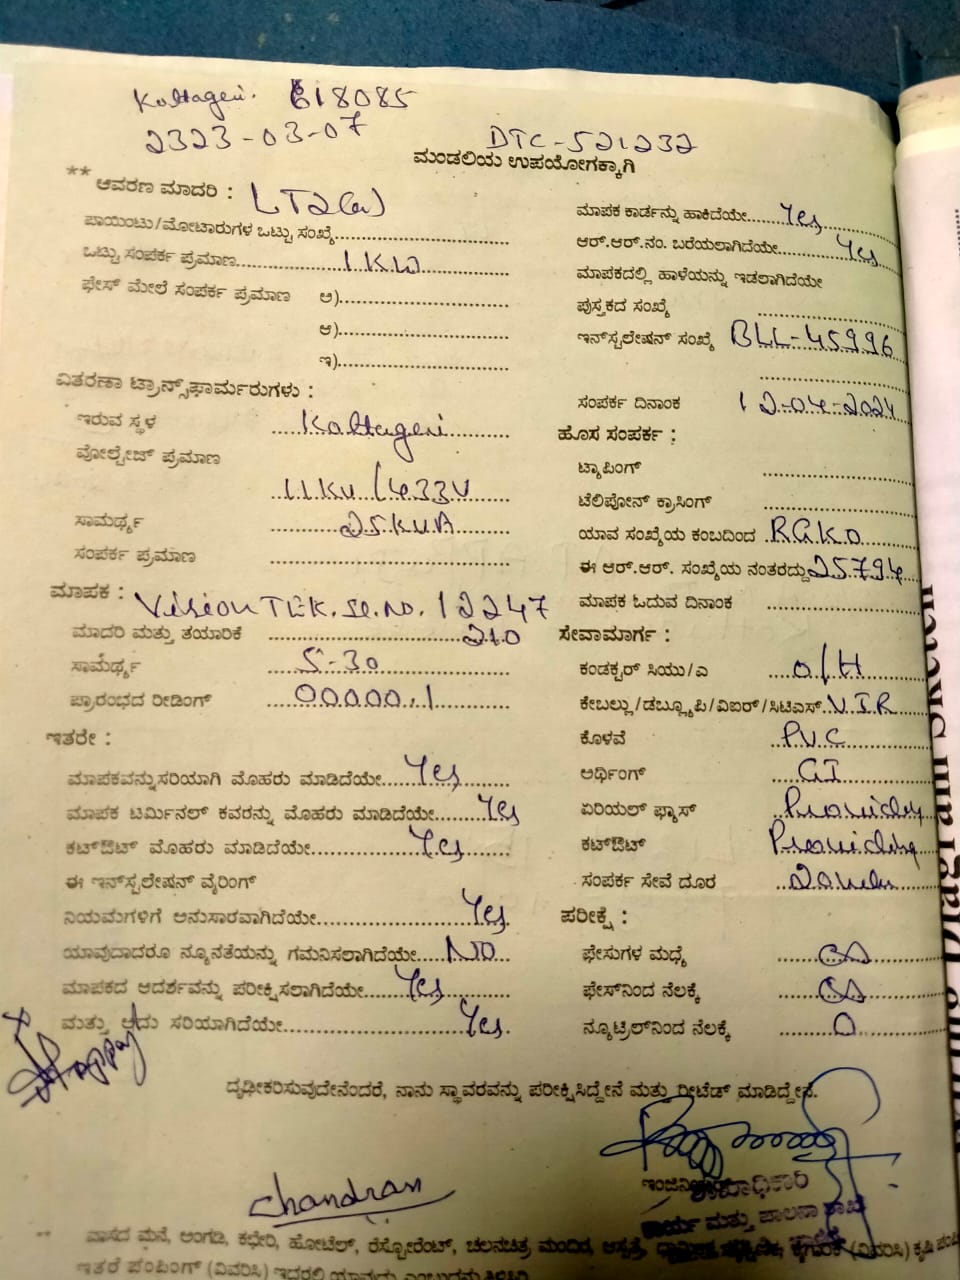 Koltageri. 618085
2323-03-07
DTC-521232
ಮಂಡಲಿಯ ಉಪಯೋಗಕ್ಕಾಗಿ
** ಆವರಣ ಮಾದರಿ : LT2(a)
ಪಾಯಿಂಟು/ಮೋಟಾರುಗಳ ಒಟ್ಟು ಸಂಖ್ಯೆ
ಒಟ್ಟು ಸಂಪರ್ಕ ಪ್ರಮಾಣ 1KW
ಫೇಸ್ ಮೇಲೆ ಸಂಪರ್ಕ ಪ್ರಮಾಣ ಅ)
ಆ)
ಇ)
ವಿತರಣಾ ಟ್ರಾನ್ಸ್‌ಫಾರ್ಮರುಗಳು :
ಇರುವ ಸ್ಥಳ Koltageri
ವೋಲ್ಟೇಜ್ ಪ್ರಮಾಣ
11KV/433V
ಸಾಮರ್ಥ್ಯ 25KVA
ಸಂಪರ್ಕ ಪ್ರಮಾಣ
ಮಾಪಕ : VisionTEK. Sl.No. 12247
ಮಾದರಿ ಮತ್ತು ತಯಾರಿಕೆ 210
ಸಾಮರ್ಥ್ಯ 5-30
ಪ್ರಾರಂಭದ ರೀಡಿಂಗ್ 00000.1
ಇತರೇ :
ಮಾಪಕವನ್ನು ಸರಿಯಾಗಿ ಮೊಹರು ಮಾಡಿದೆಯೇ Yes
ಮಾಪಕ ಟರ್ಮಿನಲ್ ಕವರನ್ನು ಮೊಹರು ಮಾಡಿದೆಯೇ Yes
ಕಟ್‌ಔಟ್ ಮೊಹರು ಮಾಡಿದೆಯೇ Yes
ಈ ಇನ್‌ಸ್ಟಲೇಷನ್ ವೈರಿಂಗ್
ನಿಯಮಗಳಿಗೆ ಅನುಸಾರವಾಗಿದೆಯೇ Yes
ಯಾವುದಾದರೂ ನ್ಯೂನತೆಯನ್ನು ಗಮನಿಸಲಾಗಿದೆಯೇ NO
ಮಾಪಕದ ಆದರ್ಶವನ್ನು ಪರೀಕ್ಷಿಸಲಾಗಿದೆಯೇ Yes
ಮತ್ತು ಅದು ಸರಿಯಾಗಿದೆಯೇ Yes
ಮಾಪಕ ಕಾರ್ಡನ್ನು ಹಾಕಿದೆಯೇ Yes
ಆರ್.ಆರ್.ನಂ. ಬರೆಯಲಾಗಿದೆಯೇ Yes
ಮಾಪಕದಲ್ಲಿ ಹಾಳೆಯನ್ನು ಇಡಲಾಗಿದೆಯೇ
ಪುಸ್ತಕದ ಸಂಖ್ಯೆ
ಇನ್‌ಸ್ಟಲೇಷನ್ ಸಂಖ್ಯೆ BLL-45996
ಸಂಪರ್ಕ ದಿನಾಂಕ 12-04-2024
ಹೊಸ ಸಂಪರ್ಕ :
ಟ್ಯಾಪಿಂಗ್
ಟೆಲಿಪೋನ್ ಕ್ರಾಸಿಂಗ್
ಯಾವ ಸಂಖ್ಯೆಯ ಕಂಬದಿಂದ
ಈ ಆರ್.ಆರ್. ಸಂಖ್ಯೆಯ ನಂತರದ್ದು 25794
ಮಾಪಕ ಓದುವ ದಿನಾಂಕ
ಸೇವಾಮಾರ್ಗ :
ಕಂಡಕ್ಟರ್ ಸಿಯು/ಎ O/H
ಕೇಬಲ್ಲು/ಡಬ್ಲ್ಯೂಪಿ/ವಿಐರ್/ಸಿಟಿಎಸ್ V.I.R
ಕೊಳವೆ PVC
ಅರ್ಥಿಂಗ್ GI
ಏರಿಯಲ್ ಫ್ಯೂಸ್ Providing
ಕಟ್‌ಔಟ್ Providing
ಸಂಪರ್ಕ ಸೇವೆ ದೂರ
ಪರೀಕ್ಷೆ :
ಫೇಸುಗಳ ಮಧ್ಯೆ
ಫೇಸ್‌ನಿಂದ ನೆಲಕ್ಕೆ
ನ್ಯೂಟ್ರಲ್‌ನಿಂದ ನೆಲಕ್ಕೆ 0
ದೃಢೀಕರಿಸುವುದೇನೆಂದರೆ, ನಾನು ಸ್ಥಾವರವನ್ನು ಪರೀಕ್ಷಿಸಿದ್ದೇನೆ ಮತ್ತು ರೀಟೆಡ್ ಮಾಡಿದ್ದೇನೆ.
chandran
ಕಾರ್ಯ ಮತ್ತು ಪಾಲನಾ ಶಾಖೆ
** ವಾಸದ ಮನೆ, ಅಂಗಡಿ, ಕಛೇರಿ, ಹೋಟೆಲ್, ರೆಸ್ಟೋರೆಂಟ್, ಚಲನಚಿತ್ರ ಮಂದಿರ, ಆಸ್ಪತ್ರೆ, (ವಿವರಿಸಿ) ಕೃಷಿ
ಇತರೆ ಪಂಪಿಂಗ್ (ವಿವರಿಸಿ)